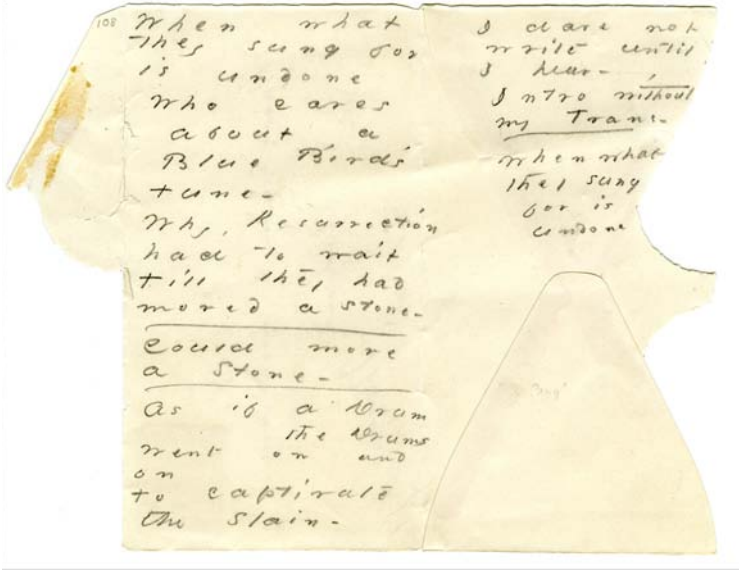 108
When what
they sung for
is undone
Who cares
about a
Blue Bird's
tune -
Why, Resurrection
had to wait
till they had
moved a stone -
Could move
a Stone -
As if a Drum
the Drums
went on and
on
to captivate
the slain -
I dare not
write until
I hear -
Intro without
my Trans -
When what
they sung
for is
undone